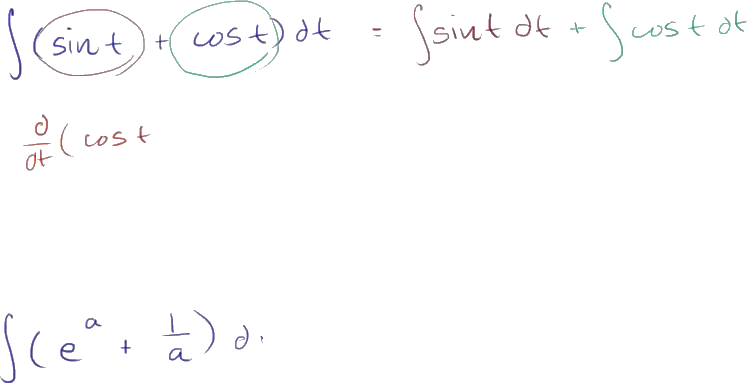 ∫(sin t + cos t) dt = ∫sin t dt + ∫cos t dt
d/dt (cos t
∫(e^a + 1/a) d